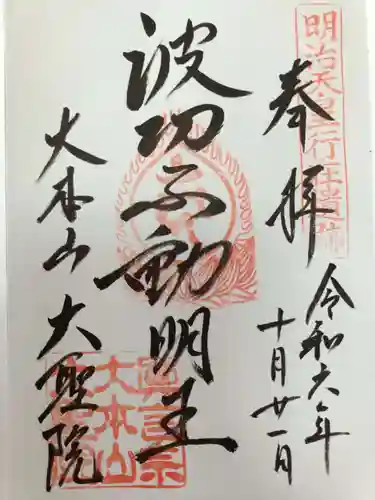 明治天皇行在所跡
奉拝
令和六年
十月廿一日
波切不動明王
大本山
大聖院
真言宗
大本山